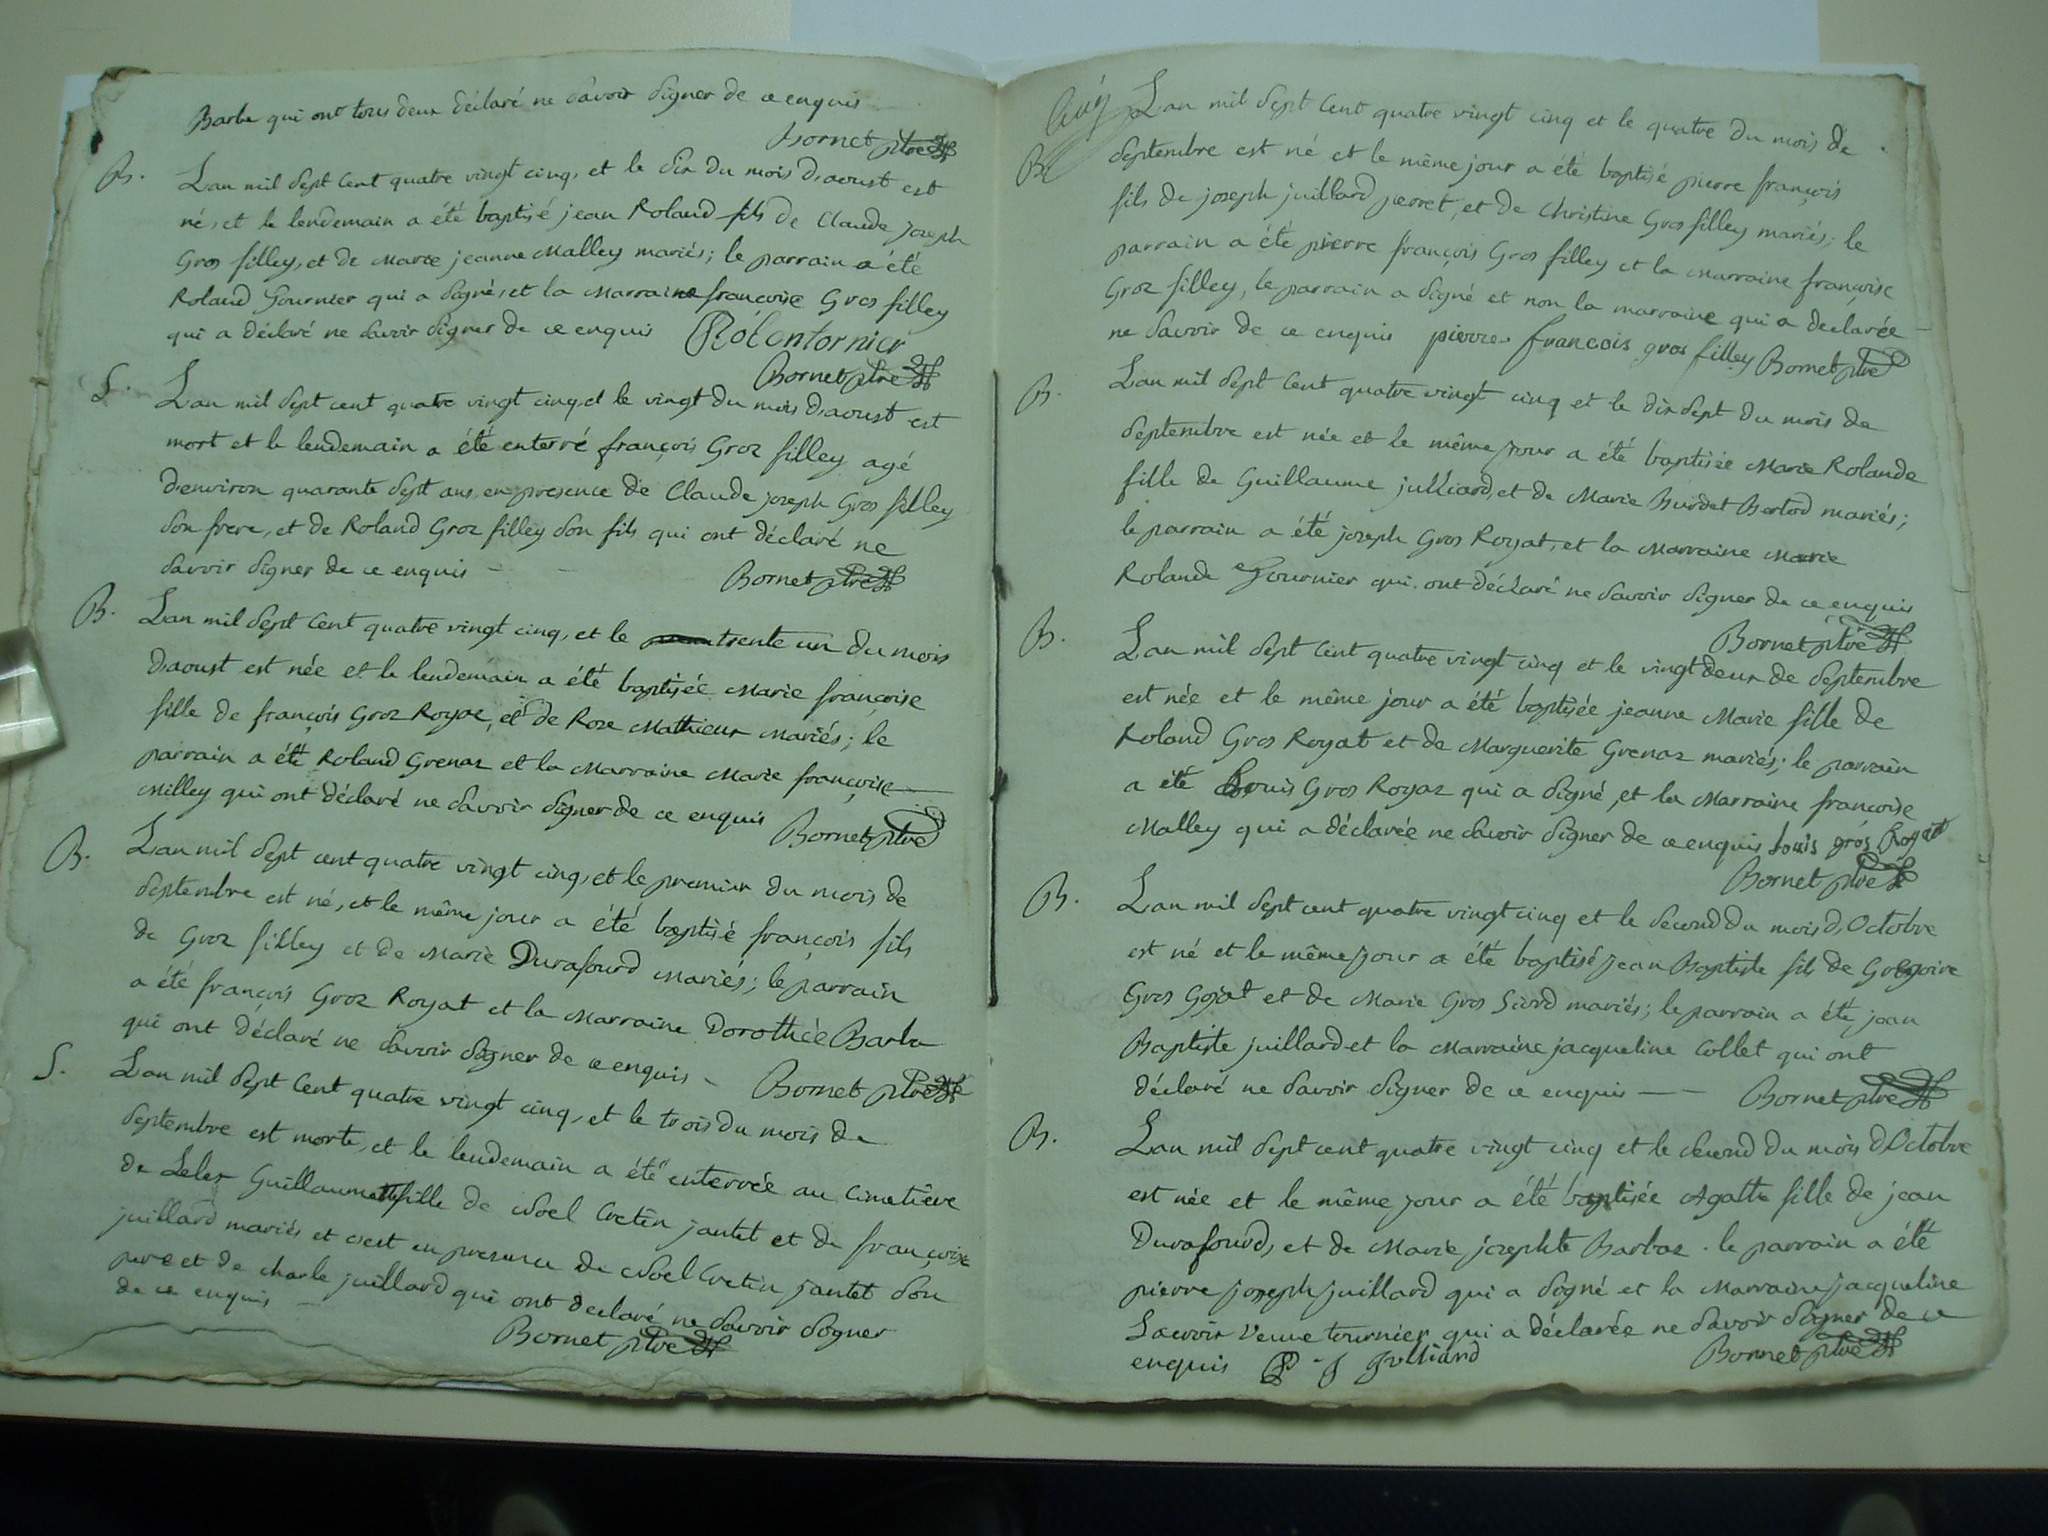 Barbe qui ont tous deux déclaré ne savoir signer de ce enquis
Bornet ptre
B. L'an mil sept cent quatre vingt cinq, et le dix du mois d'aoust est
né, et le lendemain a été baptisé jean Roland fils de Claude joseph
Gros filley, et de Marie jeanne Malley mariés; le parrain a été
Roland Tournier qui a signé, et la Marraine françoise Gros filley
qui a déclaré ne savoir signer de ce enquis Rolentornier
Bornet ptre
S. L'an mil sept cent quatre vingt cinq, et le vingt du mois d'aoust est
mort et le lendemain a été enterré françois Groz filley agé
d'environ quarante sept ans, en presence de Claude joseph Gros filley
son frere, et de Roland Groz filley son fils qui ont déclaré ne
savoir signer de ce enquis - - Bornet ptre
B. L'an mil sept Cent quatre vingt cinq, et le trente un du mois
d'aoust est née et le lendemain a été baptisée Marie françoise
fille de françois Groz Royaz, et de Roze Mathieux mariés; le
parrain a été Roland Grenaz et la Marraine Marie françoise
Milley qui ont déclaré ne savoir signer de ce enquis Bornet ptre
B. L'an mil sept cent quatre vingt cinq, et le premier du mois de
septembre est né, et le même jour a été baptisé françois fils
de Groz filley et de Marie Durafourd Mariés; le parrain
a été françois Groz Royat et la Marraine Dorothée Barbe
qui ont déclaré ne savoir signer de ce enquis - Bornet ptre
S. L'an mil sept Cent quatre vingt cinq, et le trois du mois de
septembre est morte, et le lendemain a été enterrée au Cimetière
de Lelex Guillaumette fille de Noel Cretin jantet et de françoise
juillard mariés et c'est en presence de Noel Cretin jantet son
pere et de charle juillard qui ont declaré ne savoir signer
de ce enquis -
Bornet ptre
L'an mil sept Cent quatre vingt cinq et le quatre du mois de
B. septembre est né et le même jour a été baptisé pierre françois
fils de joseph juillard perret, et de Christine Gros filley mariés; le
parrain a été pierre françois Gros filley et la marraine françoise
Groz filley, le parrain a signé et non la marraine qui a declarée
ne savoir de ce enquis pierre francois gros filley Bornet ptre
B. L'an mil sept Cent quatre vingt cinq et le dix sept du mois de
septembre est née et le même jour a été baptisée Marie Rolande
fille de Guillaume julliard, et de Marie Burdet Bertod mariés;
le parrain a été joseph Gros Royat, et la Marraine Marie
Rolande Tournier qui ont déclaré ne savoir signer de ce enquis
Bornet ptre
B. L'an mil sept Cent quatre vingt cinq et le vingt deux de septembre
est née et le même jour a été baptisée jeanne Marie fille de
Roland Gros Royat et de Marguerite Grenaz mariés; le parrain
a été Louis Gros Royaz qui a signé, et la Marraine françoise
Malley qui a déclarée ne savoir signer de ce enquis Louis gros Royat
Bornet ptre
B. L'an mil sept cent quatre vingt cinq et le second du mois d'Octobre
est né et le même jour a été baptisé jean Baptiste fils de Gregoire
Gros Gojat et de Marie Gros Siord mariés; le parrain a été jean
Baptiste juillard et la Marraine jacqueline Collet qui ont
déclaré ne savoir signer de ce enquis - - Bornet ptre
B. L'an mil sept cent quatre vingt cinq et le second du mois d'Octobre
est née et le même jour a été baptisée Agathe fille de jean
Durafourd, et de Marie josephte Barbaz. le parrain a été
pierre joseph juillard qui a signé et la Marraine jacqueline
Lacroix veuve tournier qui a déclarée ne savoir signer de ce
enquis P J Julliard Bornet ptre